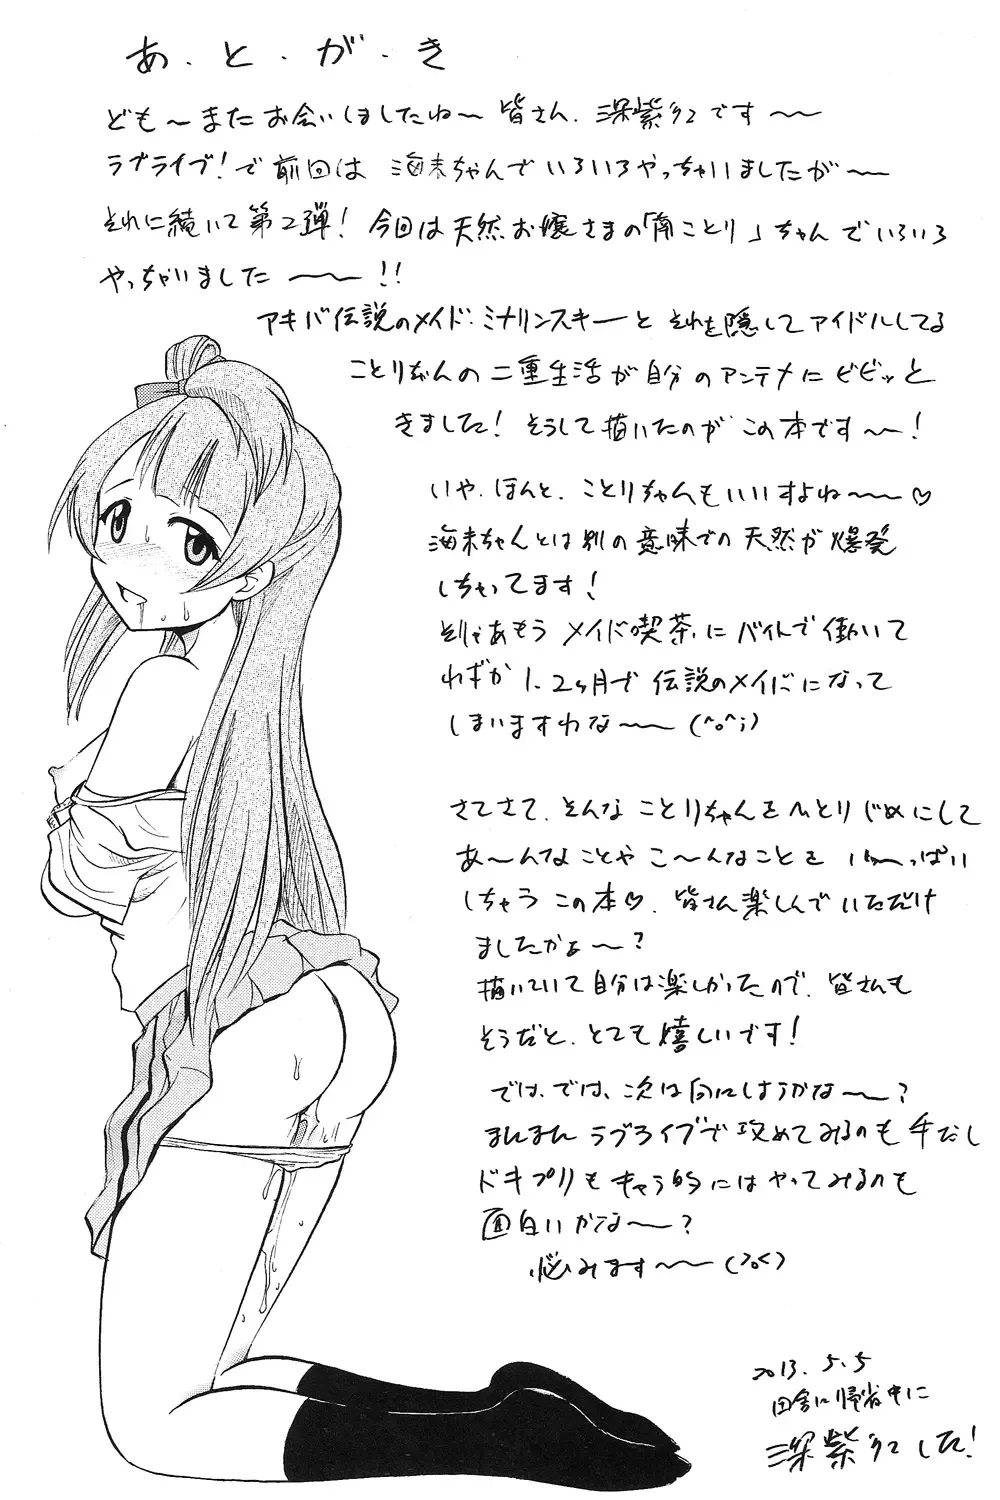 あ・と・が・き
ども〜またお会いしましたね〜皆さん、深紫とこです〜〜
ラブライブ！で前回は海未ちゃんでいろいろやっちゃいましたが〜〜
それに続いて第2弾！今回は天然お嬢さまの「南ことり」ちゃんでいろいろ
やっちゃいました〜〜!!
アキバ伝説のメイド・ミナリンスキーとそれを隠してアイドルしてる
ことりちゃんの二重生活が自分のアンテナにビビッと
きました！そうして描いたのがこの本です〜〜！
いや、ほんと、ことりちゃんもいいすよね〜〜♡
海未ちゃんとは別の意味での天然が爆発
しちゃってます！
そりゃあもうメイド喫茶にバイトで働いて
わずか1、2ヶ月で伝説のメイドになって
しまいますわな〜〜(^o^;)
さてさて、そんなことりちゃんをひとりじめにして
あ〜んなことやこ〜んなことをい〜っぱい
しちゃうこの本♡、皆さん楽しんでいただけ
ましたかよ〜？
描いていて自分は楽しかったので、皆さんも
そうだと、とても嬉しいです！
では、では、次は何にしようかな〜〜？
まんまんラブライブで攻めてみるのも手だし
ドキプリもキャラ的にはやってみるのも
面白いかな〜〜？
悩みます〜〜(>o<)
2013.5.5
田舎に帰省中に
した！